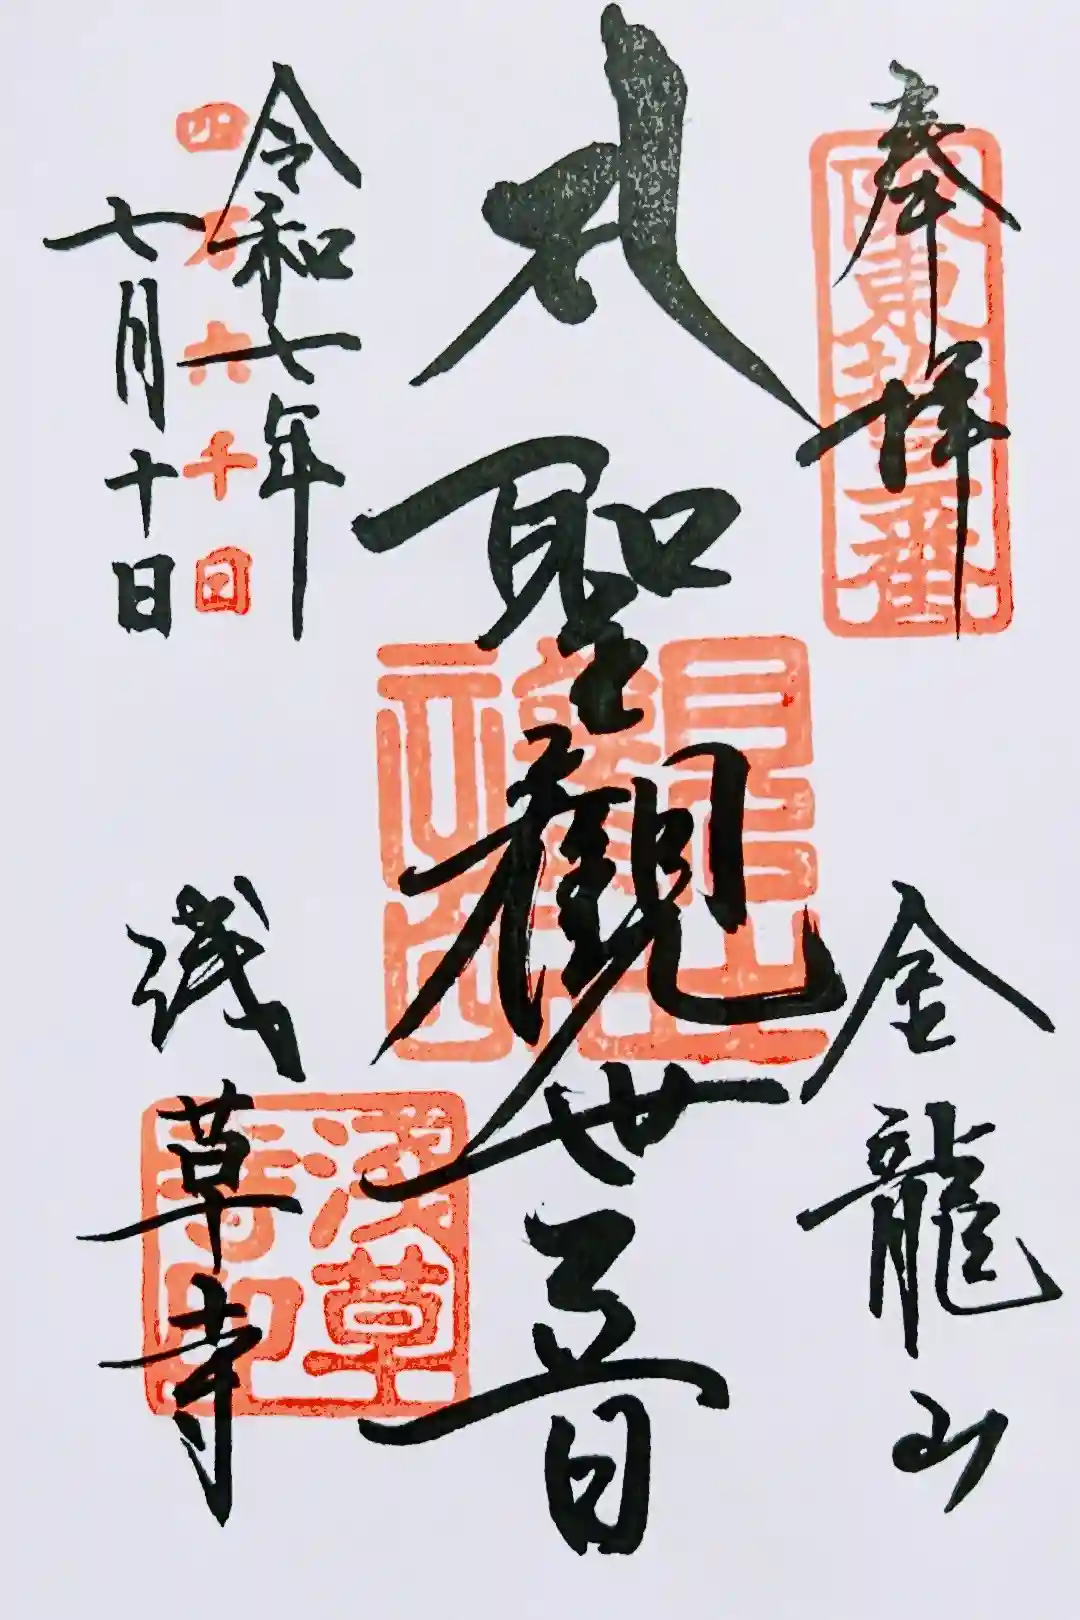 奉拝
阪東拾三番
金龍山
聖觀世音
令和七年
四万六千日
七月十日
淺草寺
淺草寺印